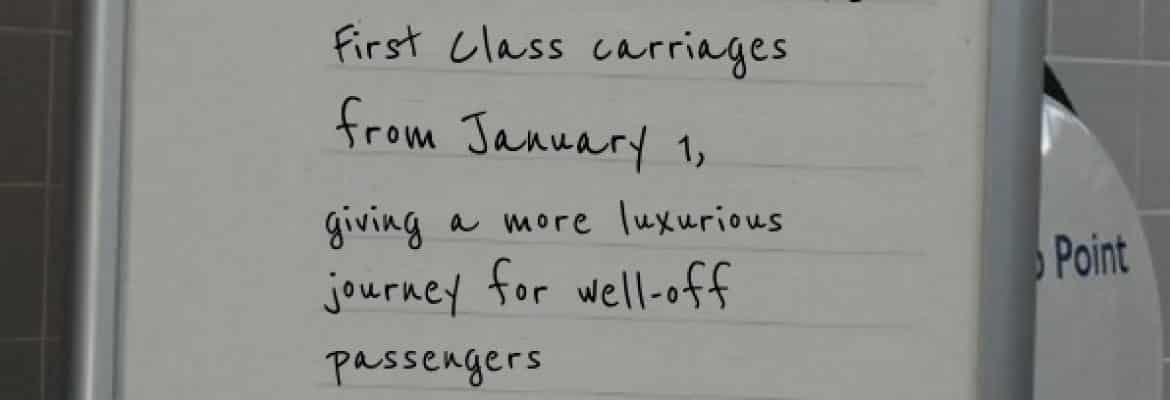 First Class carriages
from January 1,
giving a more luxurious
journey for well-off
passengers
Point